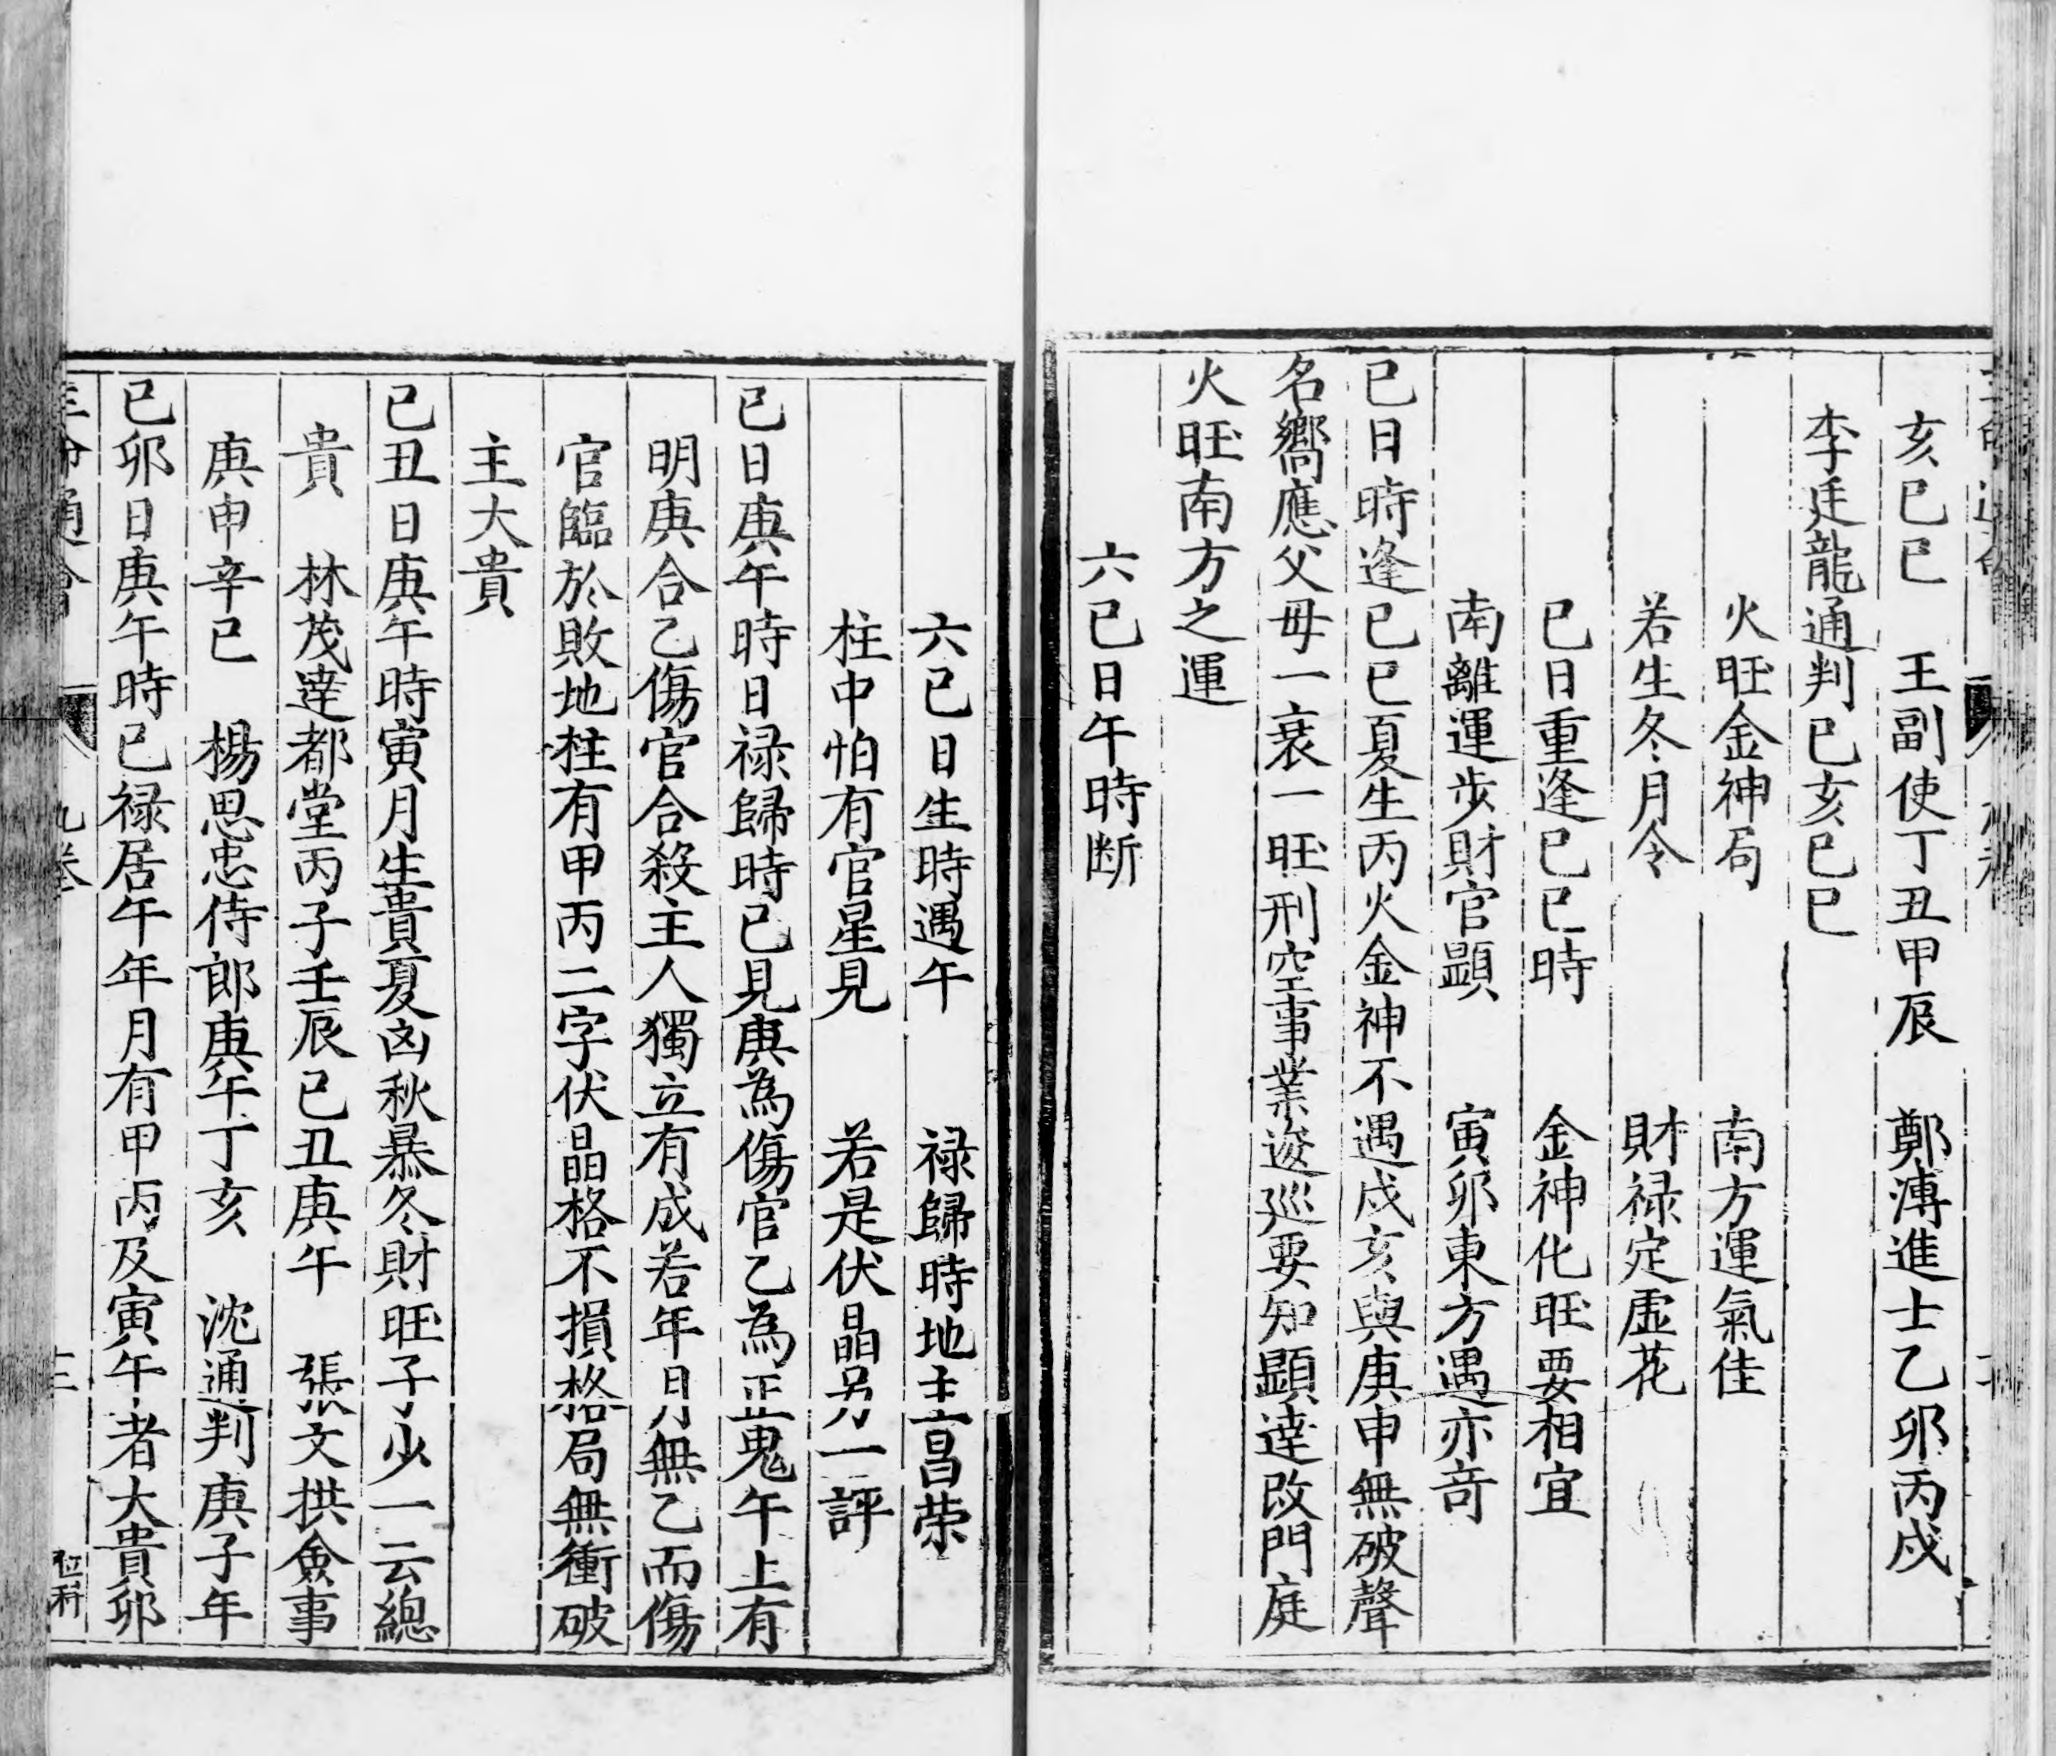 亥己巳　王副使丁丑甲辰　鄭溥進士乙卯丙戌
李廷龍通判己亥己巳
火旺金神局　南方運氣佳
若生冬月令　財禄定虚花
己日重逢己巳時　金神化旺要相宜
南離運步財官顯　寅卯東方遇亦竒
己日時逢己巳夏生丙火金神不遇戌亥與庚申無破聲
名嚮應父母一衰一旺刑空事業逡巡要知顯達改門庭
火旺南方之運
六己日午時断
六己日生時遇午　禄歸時地主昌荣
柱中怕有官星見　若是伏晶另一評
己日庚午時日禄歸時己見庚為傷官乙為正鬼午上有
明庚合乙傷官合殺主人獨立有成若年月無乙而傷
官臨於敗地柱有甲丙二字伏晶格不損格局無衝破
主大貴
己丑日庚午時寅月生貴夏凶秋暴冬財旺子少一云總
貴　林茂達都堂丙子壬辰己丑庚午　張文拱僉事
庚申辛巳　楊思忠侍郎庚午丁亥　沈通判庚子年
己卯日庚午時己禄居午年月有甲丙及寅午者大貴卯
三命通會　九卷　三